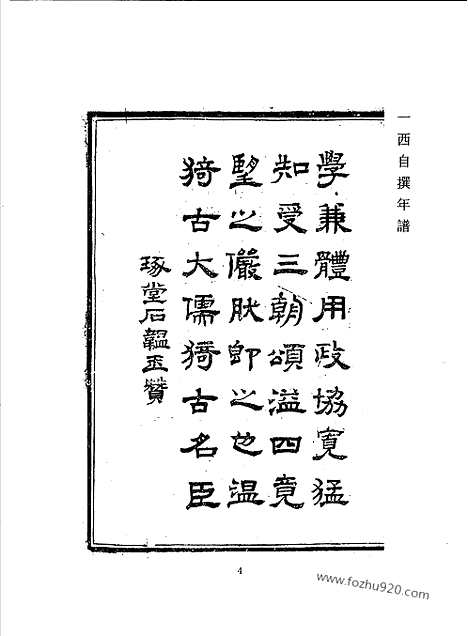 一西自撰年譜
學兼體用政協寬猛
知受三朝頌溢四竟
朢之儼肰即之也温
猗古大儒猗古名臣
琢堂石韞玉贊
4
www.fozhu920.com